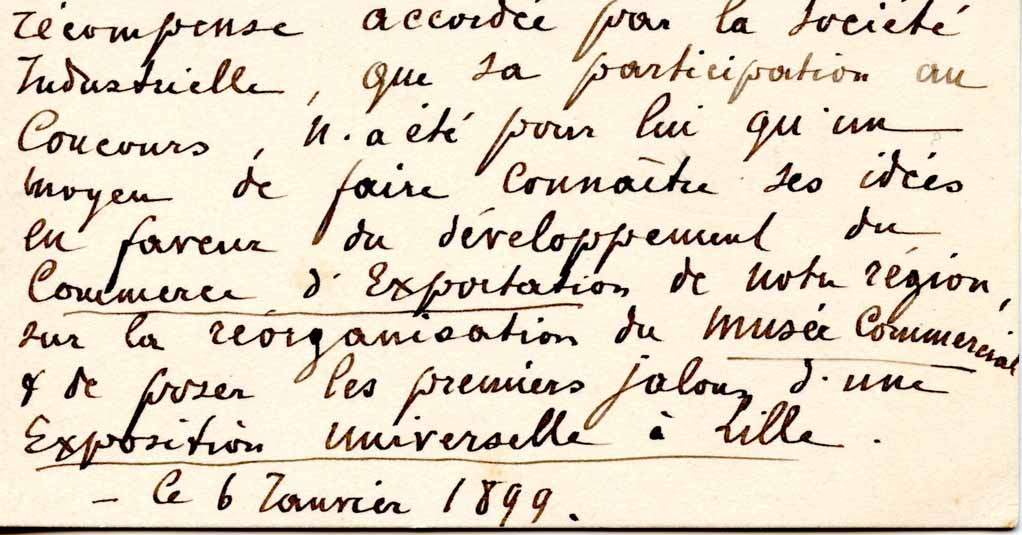 récompense accordée par la Société
Industrielle, que sa participation au
Concours, n'a été pour lui qu'un
moyen de faire connaître ses idées
en faveur du développement du
Commerce d'Exportation de notre région,
sur la réorganisation du Musée Commercial
& de poser les premiers jalons d'une
Exposition Universelle à Lille.
– Le 6 Janvier 1899.